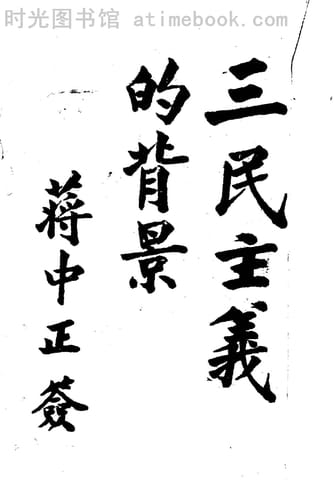 时光图书馆 atimebook.com
三民主義
的背景
蔣中正簽